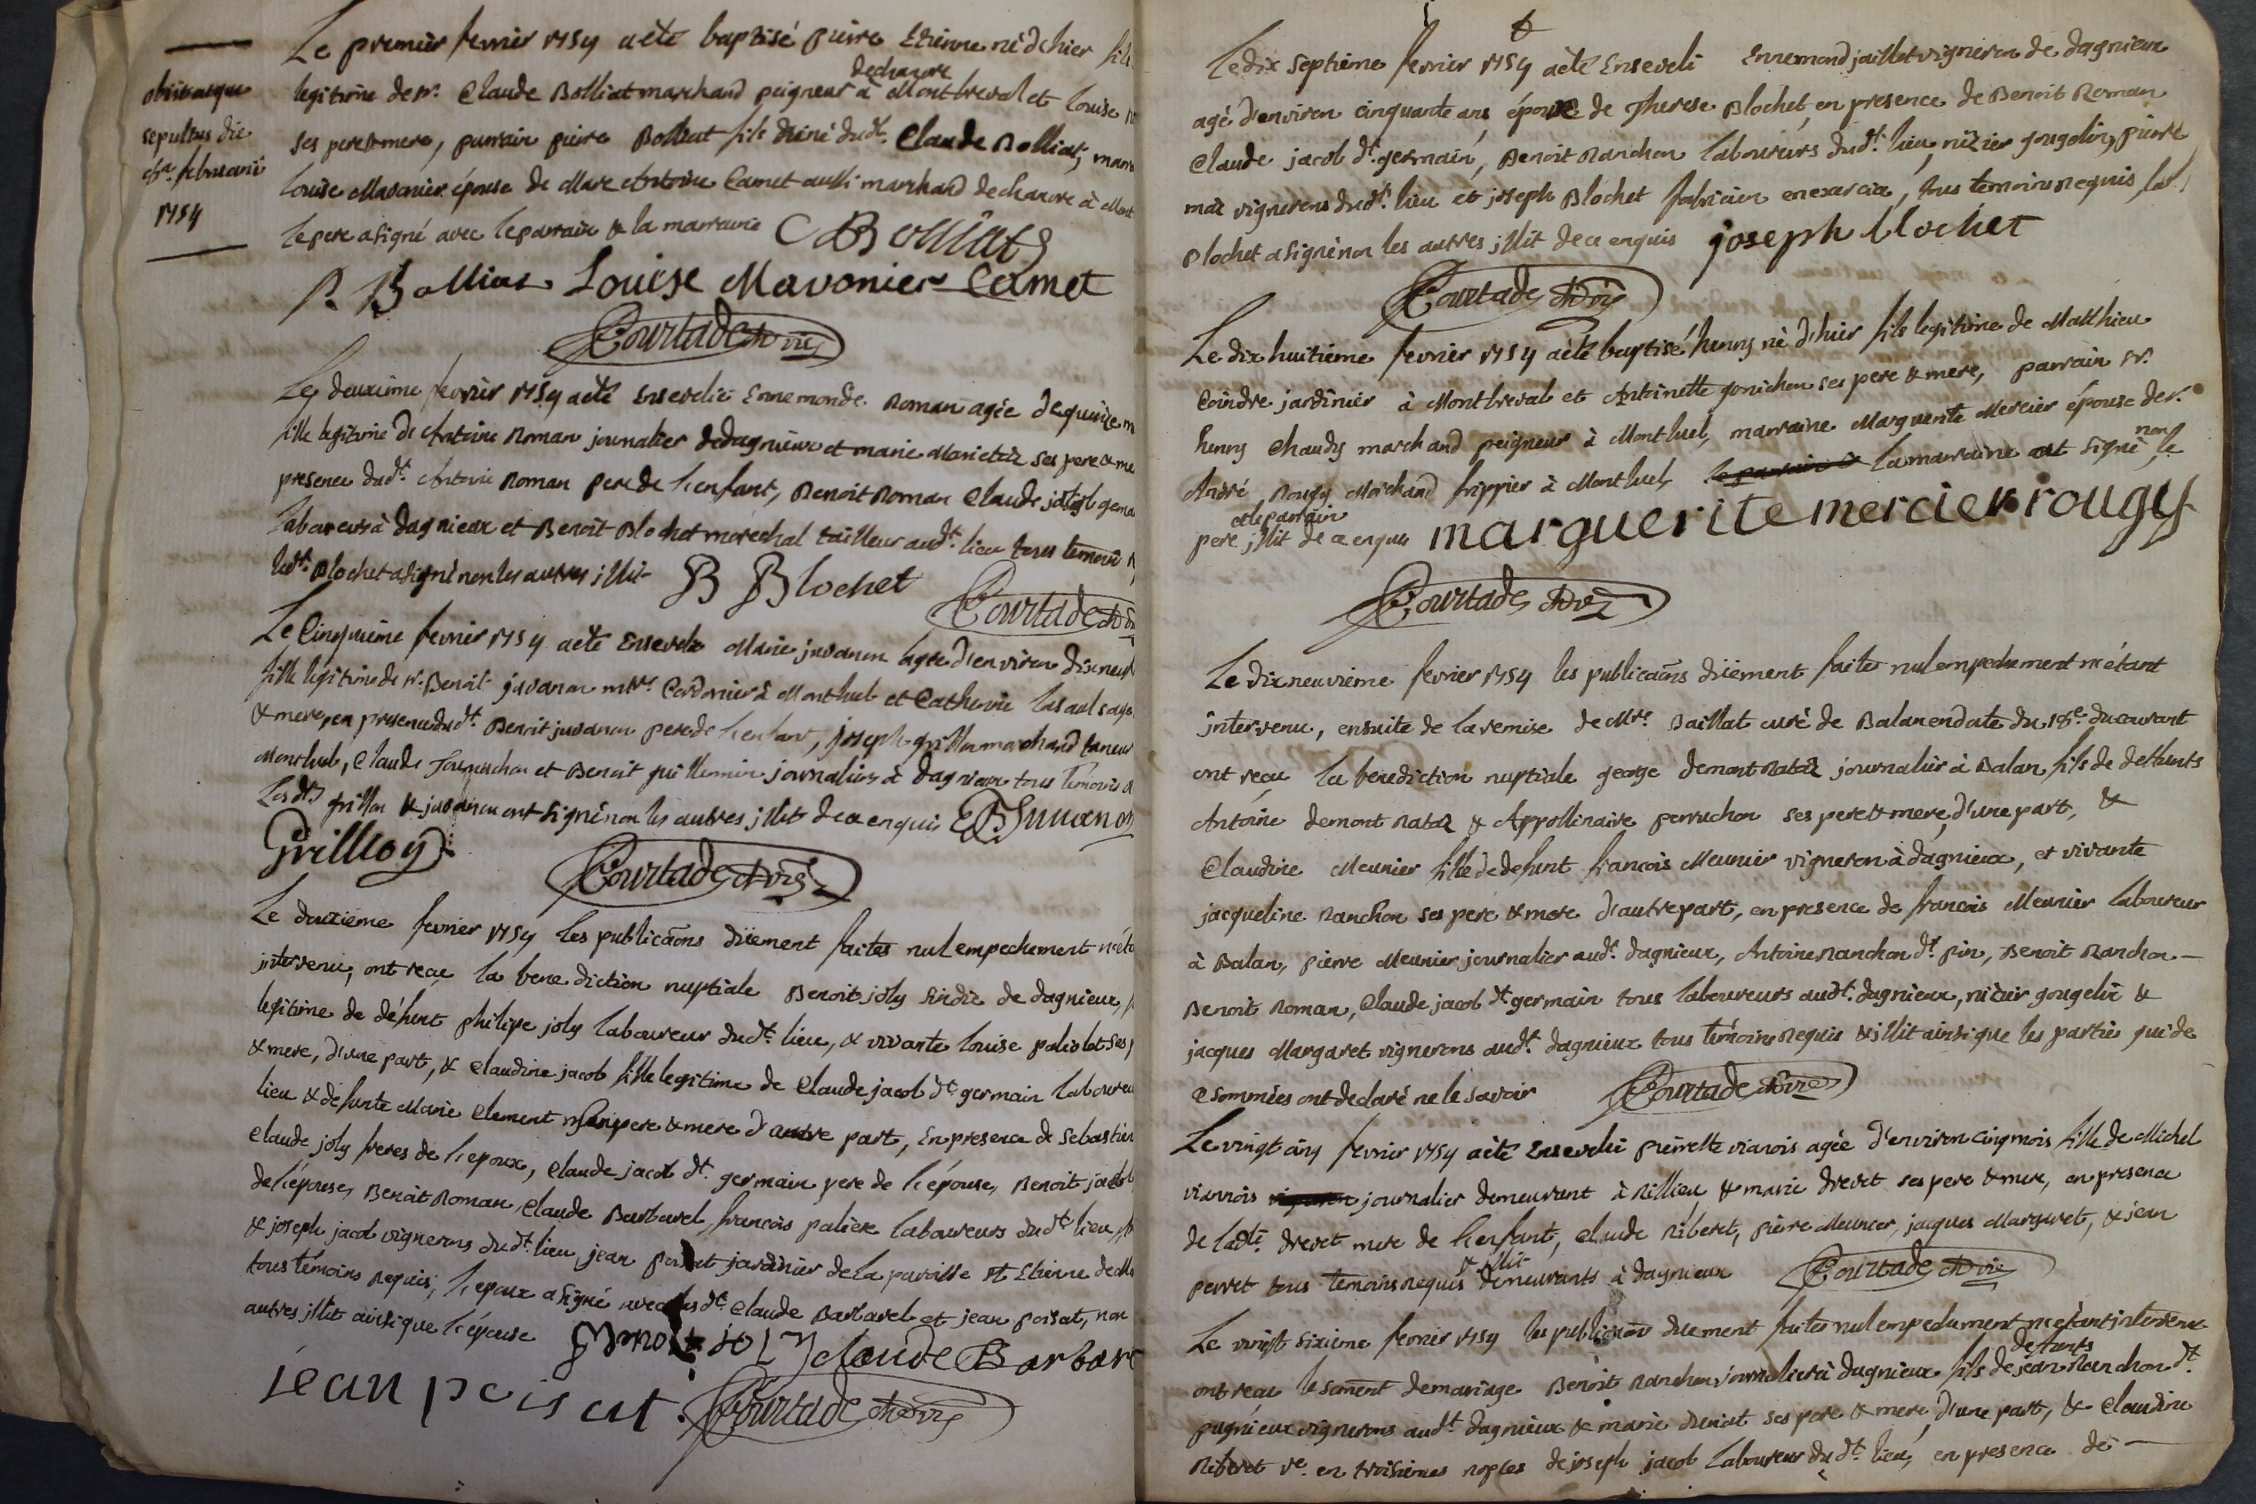 Le premier fevrier 1754 a èté baptisé pierre Etienne né d'hier fils
legitime de sr. Claude Bolliat marchand peigneur de chanvre à Montluel et louise
ses pere & mere, parrain pierre Bolliat fils dudt. Claude Bolliat, marr
louise Mavonier épouse de Marc Antoine Camet aussi marchand de chanvre à Mont
le pere a signé avec le parrain & la marraine C Bolliat
obiit atque
sepultus die
februarii
1754
P. Bolliat Louise Mavonier Camet
Courtade
Le deuxième fevrier 1754 a èté Ensevelie Ennemonde Roman agée de quinze m
fille legitime de Antoine Roman journalier de dagnieux et marie ses pere & me
presence dudt. Antoine Roman pere de l'enfant, Benoit Roman Claude jacob germa
laboureurs à dagnieux et Benoit Blochet maréchal tailleur audt. lieu tous temoins
ledt. Blochet a signé non les autres illit B Blochet
Courtade
Le Cinquième fevrier 1754 a èté Ensevelie Marie juvanon agée d'environ dix neuf
fille legitime de sr. Benoit juvanon mtre. Cordonnier à Montluel et Catherine
& mere, en presence dudt. Benoit juvanon pere de l'enfant, joseph grillon marchand taneur
Montluel, Claude et Benoit guillemin journaliers à dagnieux tous temoins
Lesdts grillon & juvanon ont signé non les autres illit de ce enquis B Juvanon
Grillion
Courtade
Le fevrier 1754 les publicaons düement faites nul empechement n'éta
intervenu, ont reçu la benediction nuptiale Benoit joly sindic de dagnieux,
legitime de défunt philipe joly laboureur dudt. lieu, & vivante louise paliolot ses p
& mere, d'une part, & Claudine jacob fille legitime de Claude jacob dt germain laboureu
lieu & defunte Marie Clement pere & mere d'autre part, En presence de Sebastien
Claude joly freres de l'epoux, Claude jacob dt. germain pere de l'épouse, Benoit jacob
de l'épouse, Benoit Roman, Claude Barbarel, francois laboureurs dudt lieu,
& joseph jacob vignerons dudt. lieu, jean poisat jardinier de la paroisse st Etienne de
tous témoins requis, l'epoux a signé avec lesdt. Claude Barbarel et jean poisat, non
autres illit ainsi que l'épouse Benoit joly claude Barbare
jean poisat Courtade
Le dix Septième fevrier 1754 a èté Enseveli Ennemond jaillet vigneron de dagnieux
agé d'environ cinquante ans époux de Therese Blochet, en presence de Benoit Roman
Claude jacob dt. germain, Benoit Ranchon laboureurs dudt. lieu, nizier gougelin, pierre
vignerons dudt. lieu et joseph Blochet fabricien en exercice, tous temoins requis led
Blochet a signé non les autres illit de ce enquis joseph blochet
Courtade
Le dix huitième fevrier 1754 a èté baptisé henry né d'hier fils legitime de Matthieu
Coindre jardinier à Montluel et Antoinette gonichon ses pere & mere, parrain sr.
henry Chaudy marchand peigneur à Montluel, marraine Marguerite Mercier épouse de sr.
André Rougy Marchand frippier à Montluel, la marraine a signé, non le
pere et le parrain illit de ce enquis marguerite mercier rougy
Courtade
Le dix neuvième fevrier 1754 les publicaons düement faites nul empechement n'étant
intervenu, ensuite de la remise de Mre. Baillat curé de Balan en date du 18e. du courant
ont reçu la benediction nuptiale george demont Ratal journalier à Balan fils de deffunts
Antoine demont Ratal & Appollinaire perruchon ses pere & mere, d'une part, &
Claudine Meunier fille de defunt francois Meunier vigneron à dagnieux, et vivante
jacqueline Ranchon ses pere & mere d'autre part, en presence de francois Meunier laboureur
à Balan, pierre Meunier journalier audt. dagnieux, Antoine Ranchon dt. pin, Benoit Ranchon
Benoit Roman, Claude jacob dt germain tous laboureurs audt. dagnieux, nizier gougelin &
jacques Margaret vignerons audt. dagnieux tous témoins requis & illit ainsi que les parties qui de
ce sommées ont declaré ne le savoir Courtade
Le vingt cinq fevrier 1754 a èté Ensevelie pierrette vianois agée d'environ cinq mois fille de Michel
viannois journalier demeurant à Rillieu & marie drevet ses pere & mere, en presence
de ladte. drevet mere de l'enfant, Claude Riberet, pierre Meunier, jacques Margaret, & jean
perret tous temoins requis & illit demeurants à dagnieux Courtade
Le vingt sixième fevrier 1754 les publicaons düement faites nul empechement n'étant intervenu
ont reçu le sacment de mariage Benoit Ranchon journalier à dagnieux fils de defunts jean Ranchon dt.
pugnieux vignerons audt dagnieux & marie ses pere & mere, d'une part, & Claudine
Riberet ve. en troisièmes noces de joseph jacob laboureur dudt. lieu, en presence de